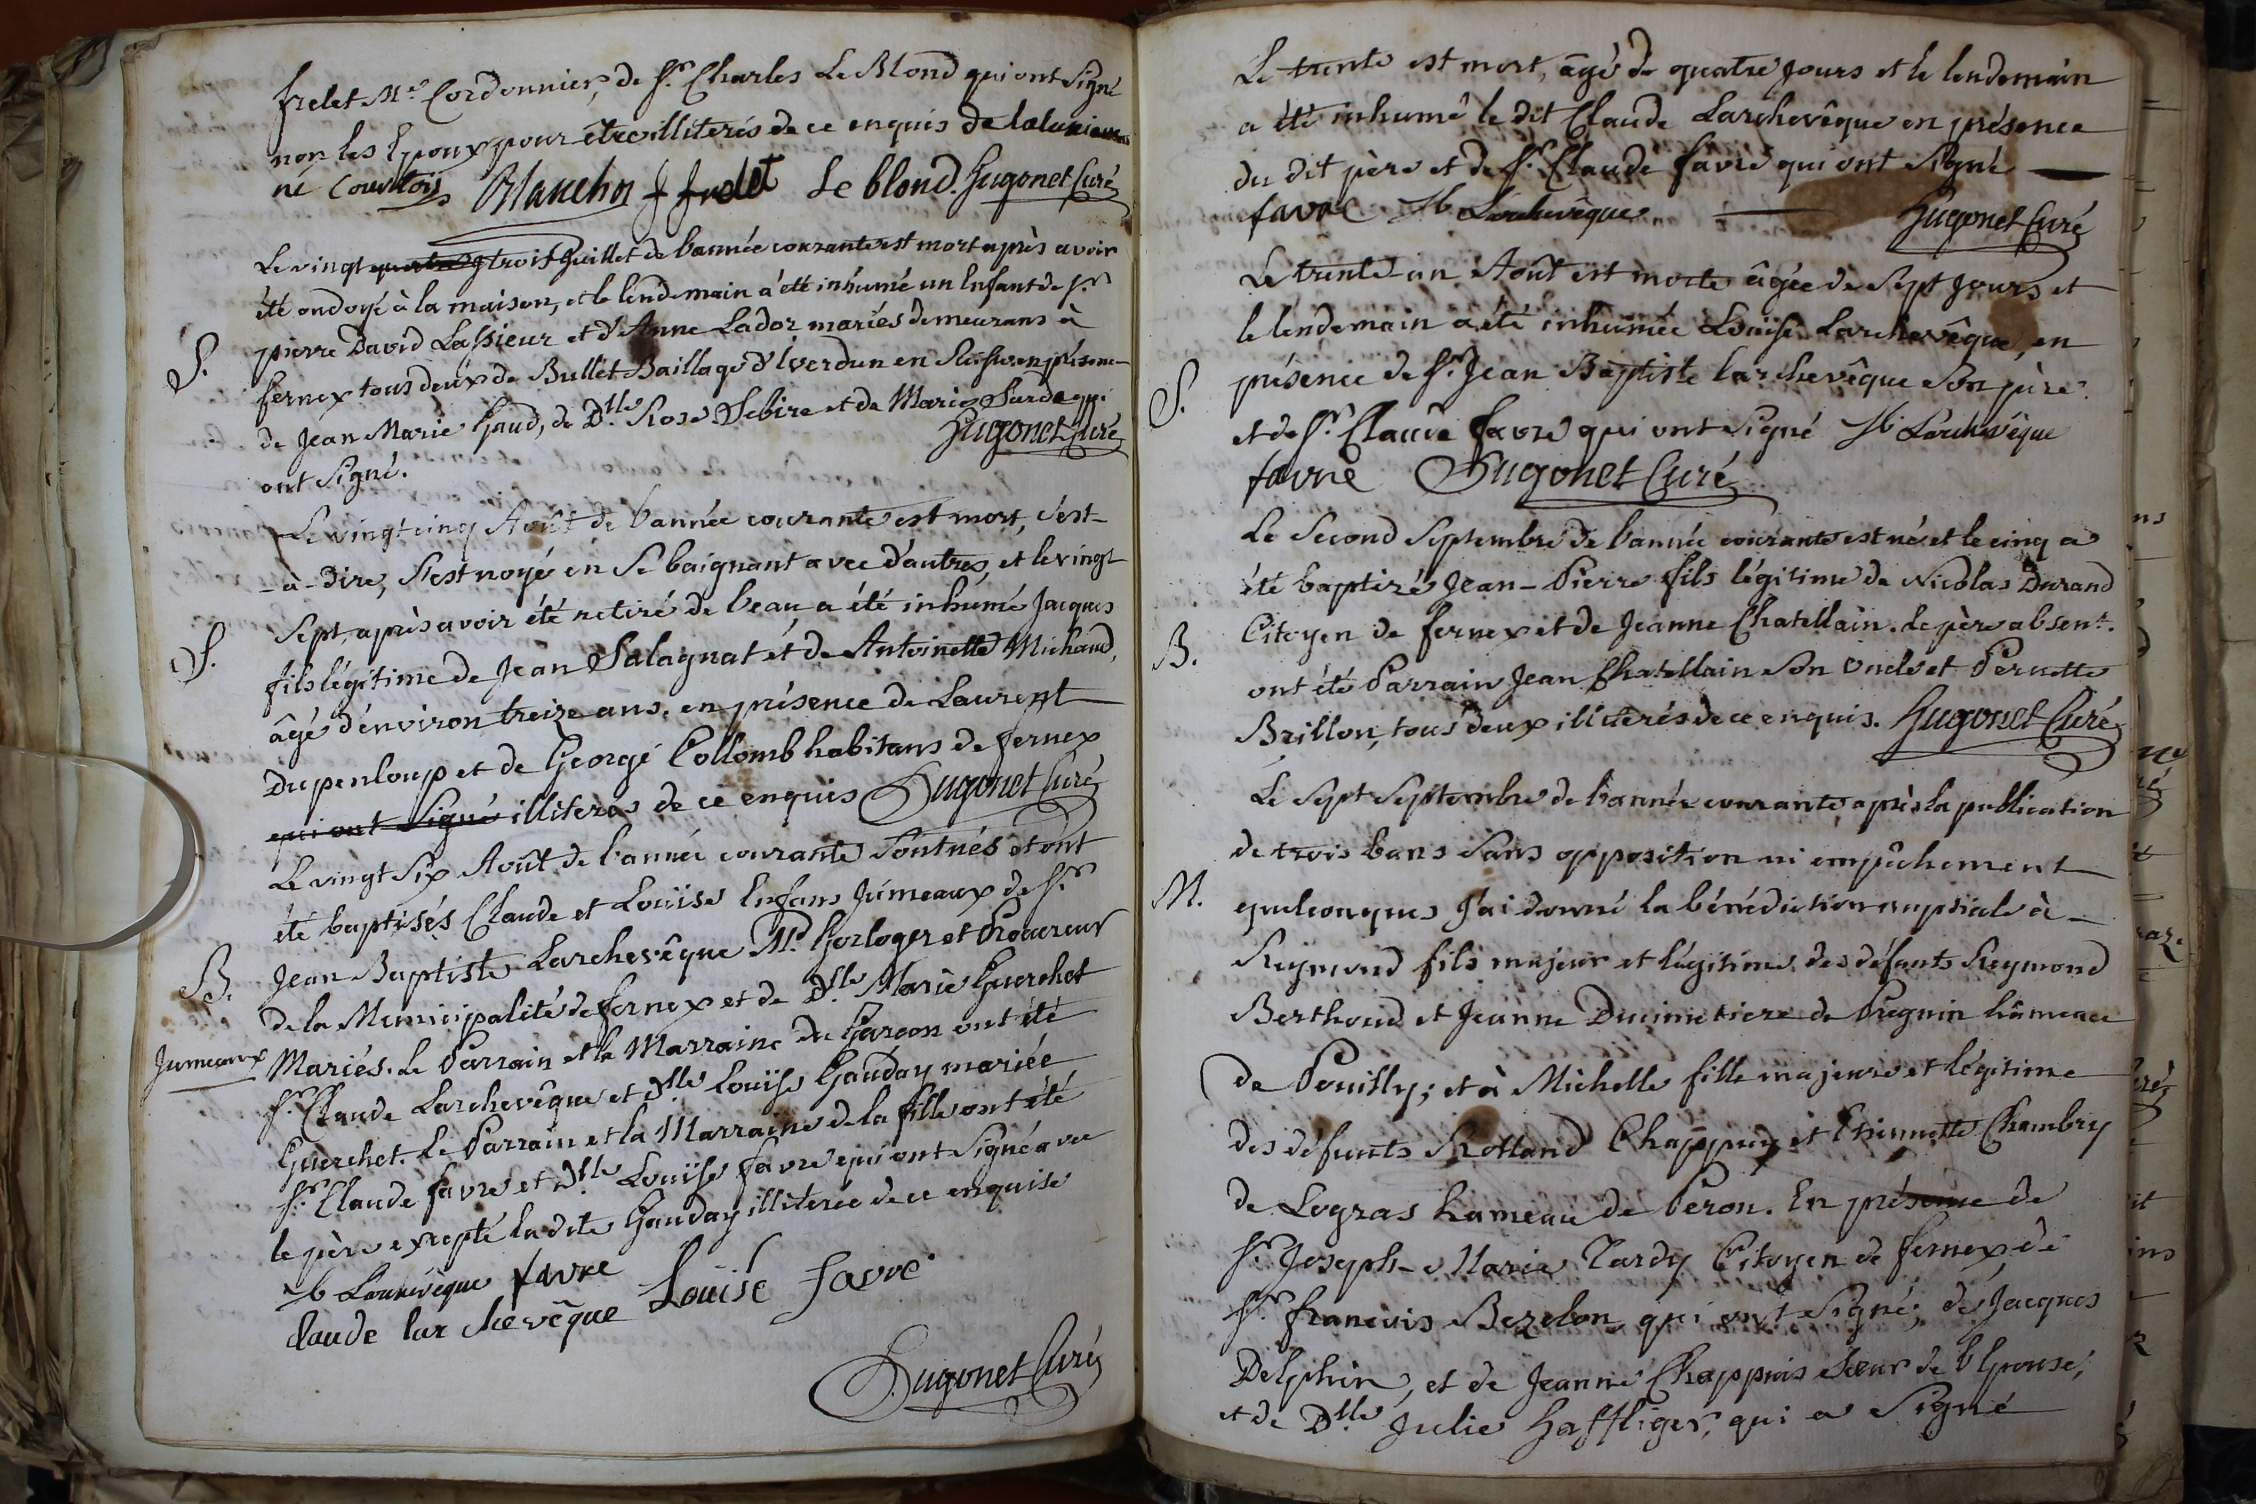 frelet Me. Cordonnier, de Sr. Charles Le Blond qui ont Signé
non les Epoux pour être illiterés de ce enquis
né Courtois Blanchot J frelet Le blond. Hugonet Curé
Le vingt trois Juillet de l'année courante est mort après avoir
été ondoyé à la maison, et le lendemain a été inhumé un Enfant de Sr.
S.
pierre David Lassieur et d'Anne Lador mariés demeurans à
fernex tous deux de Bullet Baillage d'Iverdun en Suisse, en présence
de Jean Marie Gaud, de Dlle. Rose Debire et de Marie qui
ont Signé. Hugonet Curé
Le vingt cinq Août de l'année courante est mort, c'est-
-à-dire, S'est noyé en Se baignant avec d'autres, et le vingt
S.
Sept, après avoir été retiré de l'eau, a été inhumé Jacques
fils légitime de Jean Salagnat et de Antoinette Michaud,
âgé d'environ treize ans, en présence de Laurent
Dupenloup et de George Collomb habitans de fernex
qui ont Signé illiteres de ce enquis Hugonet Curé
Le vingt Six Août de l'année courante Sont nés et ont
été baptisés Claude et Louïse Enfans Jumeaux de Sr.
B.
Jean Baptiste Larchevêque Md. Horloger et Procureur
de la Municipalité de fernex et de Dlle. Marie Guerchet
Jumeaux
Mariés. Le Parrain et la Marraine du Garçon ont été
Sr. Claude Larchevêque et Dlle. Louïse Gauday mariée
Guerchet. Le Parrain et la Marraine de la fille ont été
Sr. Claude favre et Dlle. Louïse favre qui ont Signé avec
le père excepté la dite Gauday illiterée de ce enquise
Jb Larchevêque favre
claude lar chevêque Louïse favre
Hugonet Curé
Le trente est mort, âgé de quatre Jours et le lendemain
a été inhumé le dit Claude Larchevêque en présence
du dit père et de Sr. Claude favre qui ont Signé
favre Jb Larchevêque Hugonet Curé
Le trente un Août est morte âgée de Sept Jours et
le lendemain a été inhumée Louïse Larchevêque, en
S.
présence de Sr. Jean Baptiste larchevêque Son père
et de Sr. Claude favre qui ont Signé Jb Larchevêque
favre Hugonet Curé
Le Second Septembre de l'année courante est né et le cinq a
été baptizé Jean-Pierre fils légitime de Nicolas Durand
B.
Citoyen de fernex et de Jeanne Chatellain. Le père absent.
ont été Parrain Jean Chatellain Son Oncle et Pernette
Brillon, tous deux illiterés de ce enquis. Hugonet Curé
Le Sept Septembre de l'année courante, après la publication
de trois bans Sans opposition ni empêchement
M.
quelconques J'ai donné la bénédiction nuptiale à
Reymond fils majeur et légitime des défunts Reymond
Berthoud et Jeanne Ducimetiere de Prégnin hâmeau
de Pouilly; et à Michelle fille majeure et légitime
des défunts Rolland Chappuy et Etiennette Chambry
de Logras hameau de Peron. En présence de
Sr. Joseph-Marie Tardy Citoyen de fernex, de
Sr. francois Bezelon qui ont Signé; de Jacques
Delphin, et de Jeanne Chappuis Sœur de l'Epouse;
et de Dlle. Julie Haffliger, qui a Signé